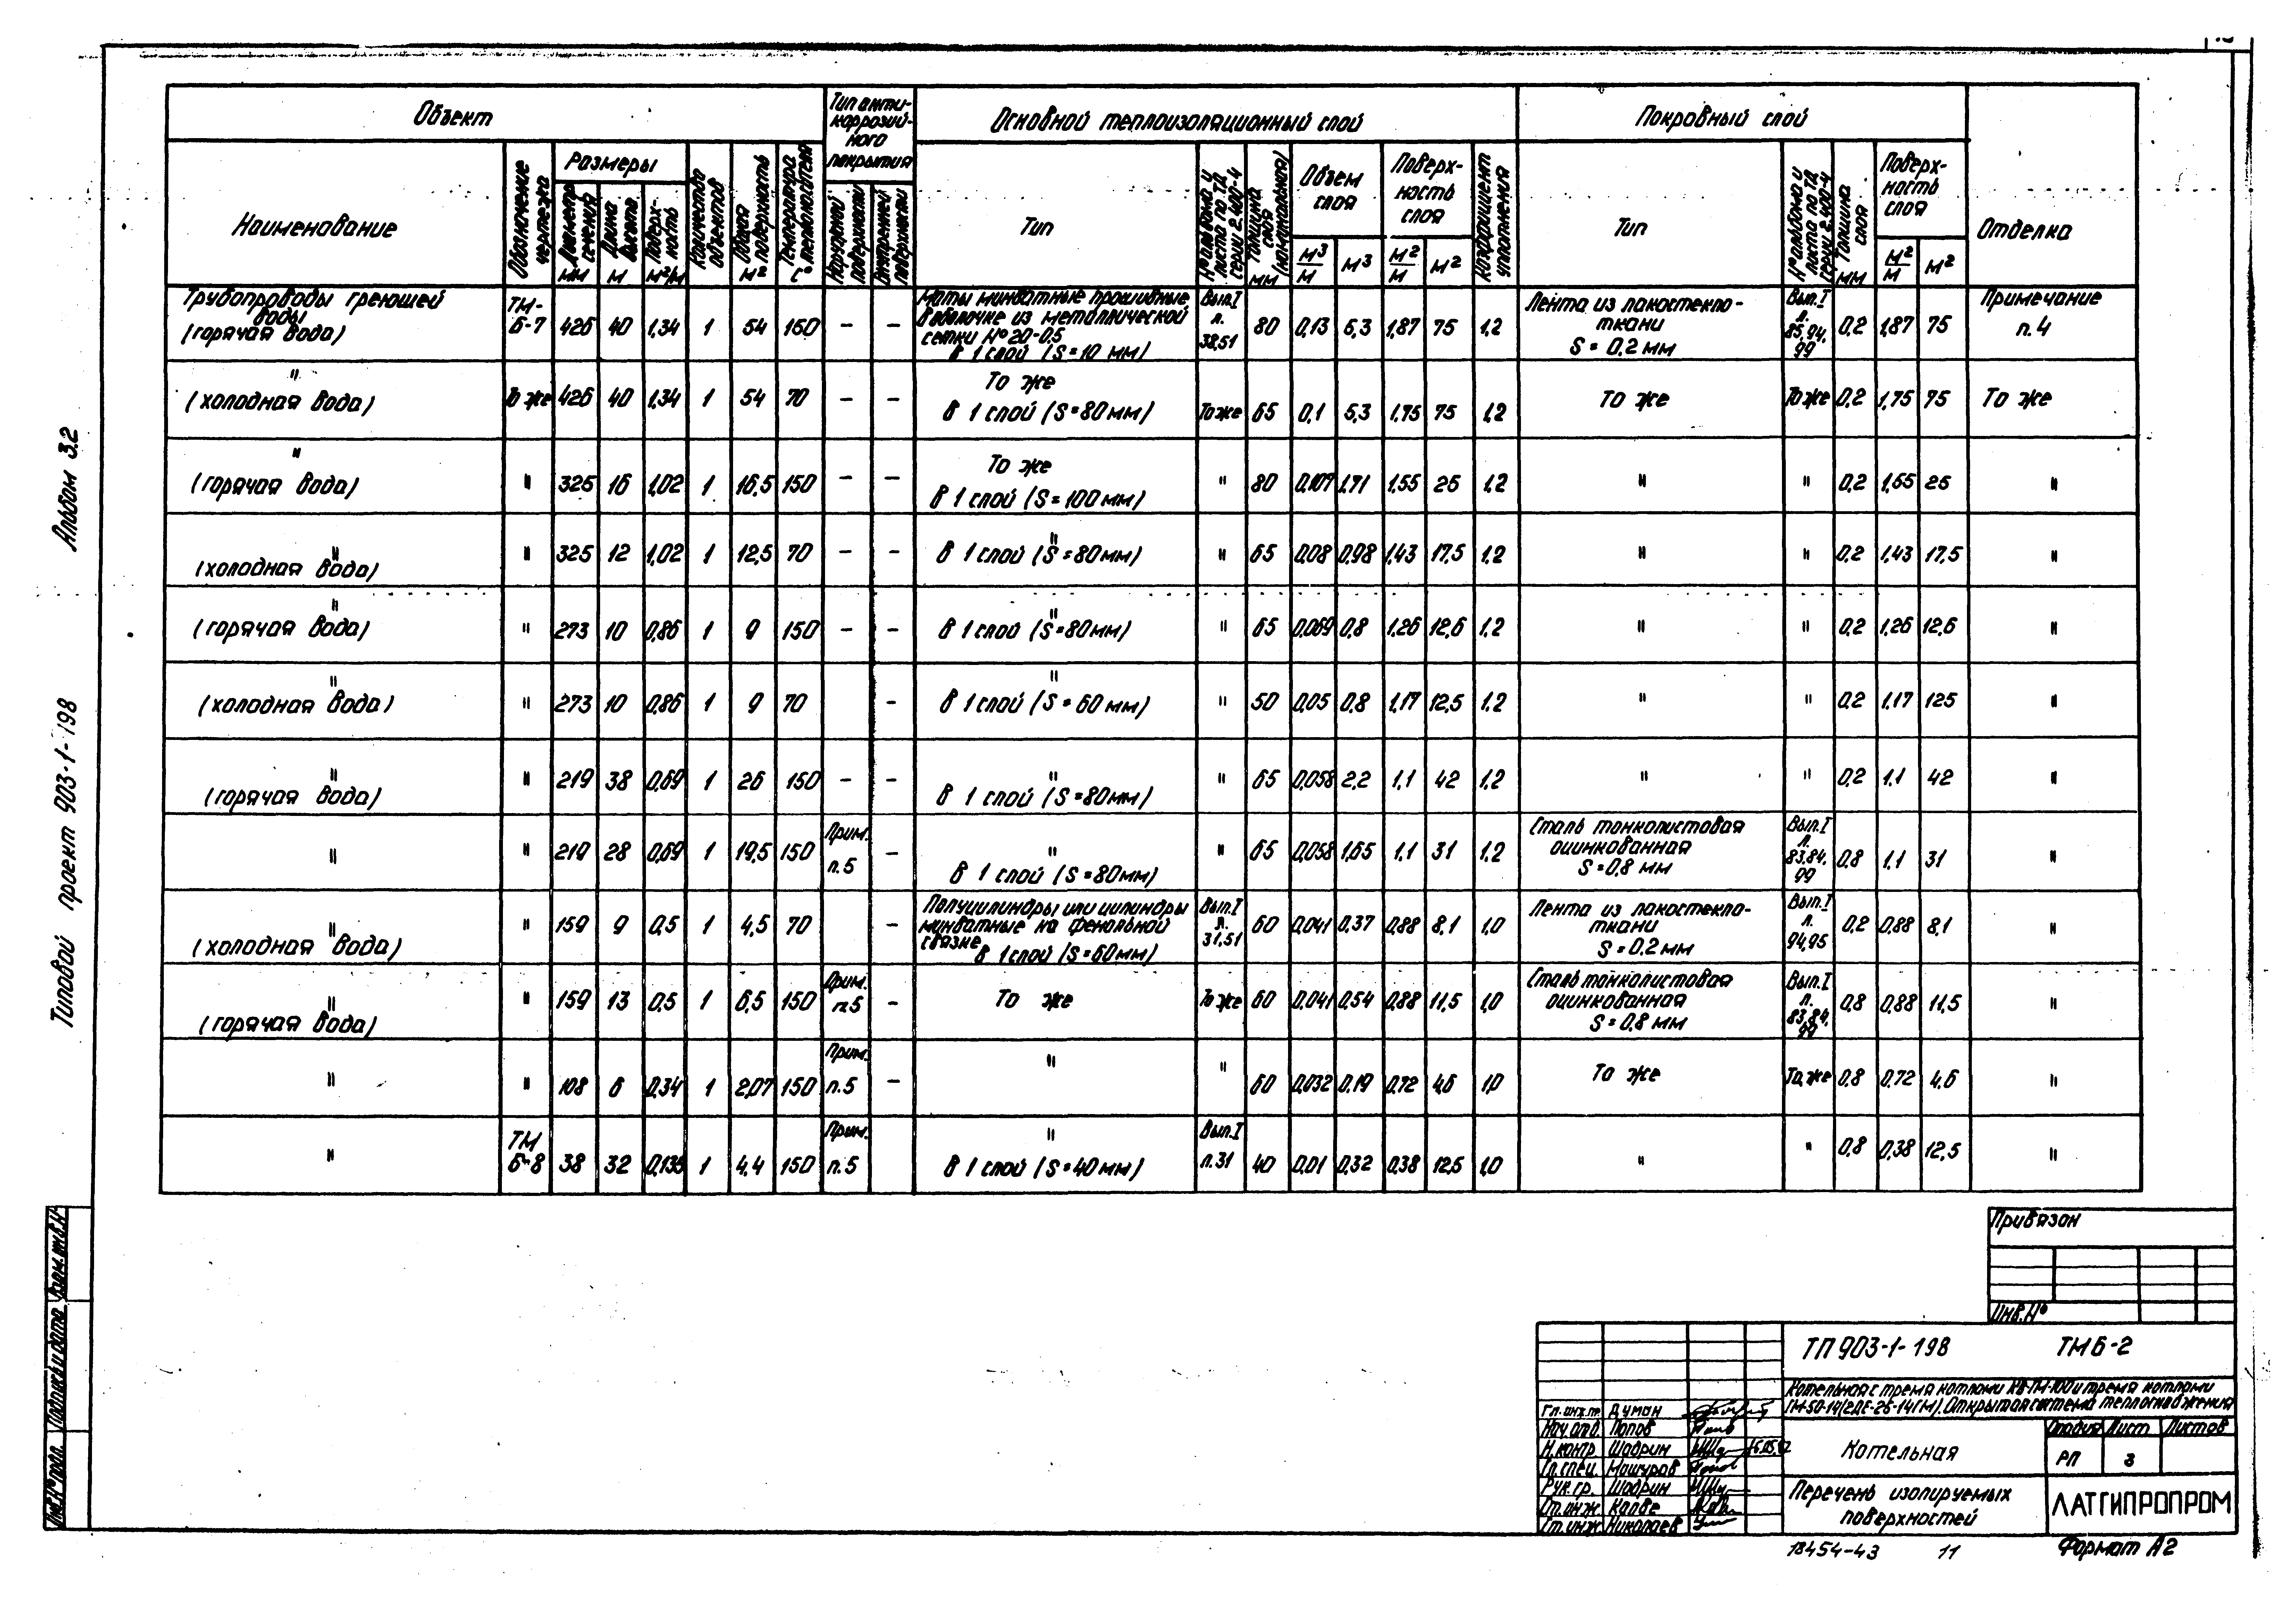 Объект
Тип анти-
коррозий-
ного
покрытия
Основной теплоизоляционный слой
Покровный слой
Наименование
Обозначение
чертежа
Размеры
Диаметр
сечения
мм
Длина
высота
м
Поверх-
ность
м²/м
Количество
объектов
Общая
поверхность
м²
Температура
теплоносителя
С°
Наружной
поверхности
Внутренней
поверхности
Тип
№ альбома и
листа по ТД
серии 2.400-4
Толщина
слоя
(номинальная)
мм
Объем
слоя
м³/м
м³
Поверх-
ность
слоя
м²/м
м²
Коэффициент
уплотнения
Тип
№ альбома и
листа по ТД
серии 2.400-4
Толщина
слоя
мм
Поверх-
ность
слоя
м²/м
м²
Отделка
Трубопроводы греющей
воды
(горячая вода)
ТМ-
Б-7
426 40 1,34 1 54 150 – –
Маты минватные прошивные
в оболочке из металлической
сетки № 20-0,5
в 1 слой (S=10 мм)
Вып.I
л.
38,51
80 0,13 5,3 1,87 75 1,2
Лента из лакостекло-
ткани
S = 0,2 мм
Вып. I
л.
85,94,
99
0,2 1,87 75
Примечание
п. 4
"
(холодная вода)
То же 426 40 1,34 1 54 70 – –
То же
в 1 слой (S=80мм)
То же 65 0,1 5,3 1,75 75 1,2
То же
То же 0,2 1,75 75 То же
"
(горячая вода)
" 325 16 1,02 1 16,5 150 – –
То же
в 1 слой (S=100мм)
" 80 0,107 1,71 1,55 25 1,2 " " 0,2 1,55 25 "
"
(холодная вода)
" 325 12 1,02 1 12,5 70 – –
"
в 1 слой (S=80мм)
" 65 0,08 0,98 1,43 17,5 1,2 " " 0,2 1,43 17,5 "
"
(горячая вода)
" 273 10 0,86 1 9 150 – –
"
в 1 слой (S=80мм)
" 65 0,069 0,8 1,26 12,6 1,2 " " 0,2 1,26 12,6 "
"
(холодная вода)
" 273 10 0,86 1 9 70 –
"
в 1 слой (S=60мм)
" 50 0,05 0,8 1,17 12,5 1,2 " " 0,2 1,17 125 "
"
(горячая вода)
" 219 38 0,69 1 26 150 – –
"
в 1 слой (S=80мм)
" 65 0,058 2,2 1,1 42 1,2 " " 0,2 1,1 42 "
"
" 219 28 0,69 1 19,5 150
Прим.
п. 5
–
"
в 1 слой (S=80мм)
" 65 0,058 1,65 1,1 31 1,2
Сталь тонколистовая
оцинкованная
S=0,8 мм
Вып. I
л.
83,84,
99
0,8 1,1 31 "
"
(холодная вода)
" 159 9 0,5 1 4,5 70 –
Полуцилиндры или цилиндры
минватные на фенольной
связке
в 1 слой (S=60мм)
Вып. I
л.
31,51
60 0,041 0,37 0,88 8,1 1,0
Лента из лакостекло-
ткани
S = 0,2 мм
Вып. I
л.
94,95
0,2 0,88 8,1 "
"
(горячая вода)
" 159 13 0,5 1 6,5 150
Прим.
п.5
–
То же
То же 60 0,041 0,54 0,88 11,5 1,0
Сталь тонколистовая
оцинкованная
S = 0,8 мм
Вып. I
л.
83,84,
99
0,8 0,88 11,5 "
"
" 108 6 0,34 1 2,07 150
Прим.
п.5
–
"
" 60 0,032 0,19 0,72 4,6 1,0
То же
То же 0,8 0,72 4,6 "
"
ТМ
Б-8
38 32 0,135 1 4,4 150
Прим.
п.5
"
в 1 слой (S=40мм)
Вып. I
л.31
40 0,01 0,32 0,38 12,5 1,0 " " 0,8 0,38 12,5 "
Альбом 3.2
Типовой проект 903-1-198
Взам. инв. №
Подпись и дата
Инв. № подл.
Привязан
Инв. №
ТП 903-1-198 ТМБ-2
Котельная с тремя котлами КВ-ГМ-100 и тремя котлами
ГМ-50-14(2ДЕ-25-14ГМ). Открытая система теплоснабжения
Гл.инж.пр. Думан
Нач.отд. Попов
Н.контр. Шадрин
Гл.спец. Машуров
Рук.гр. Шадрин
Ст.инж. Калве
Ст.инж. Николаев
Котельная
Стадия Лист Листов
РП 3
Перечень изолируемых
поверхностей
ЛАТГИПРОПРОМ
18454-43 11 Формат А2